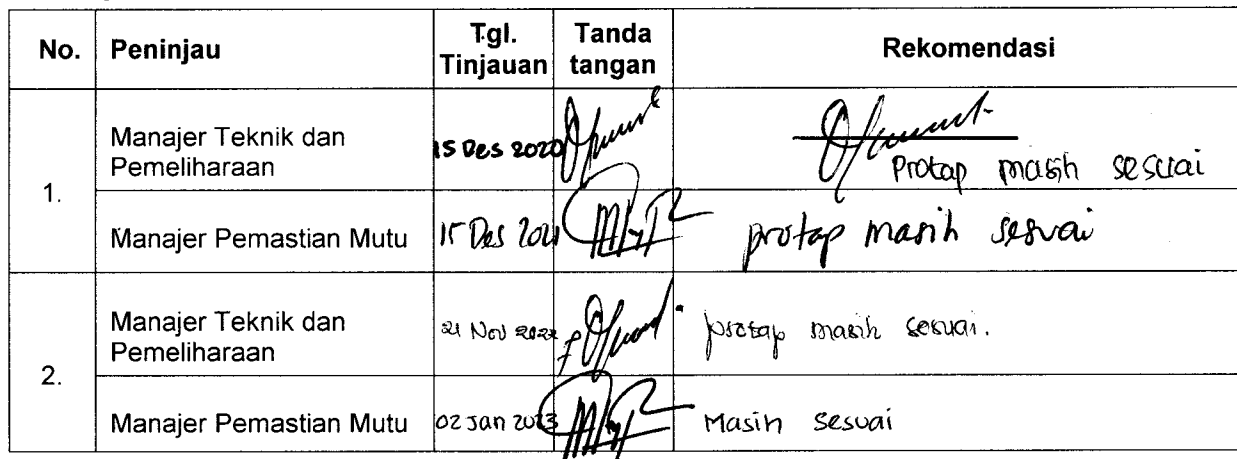 No. Peninjau Tgl. Tinjauan Tanda tangan Rekomendasi
1.
Manajer Teknik dan Pemeliharaan 15 Des 2020 Protap masih sesuai
Manajer Pemastian Mutu 15 Des protap masih sesuai
2.
Manajer Teknik dan Pemeliharaan 21 Nov 2022 protap masih sesuai.
Manajer Pemastian Mutu 02 Jan 2023 Masih sesuai